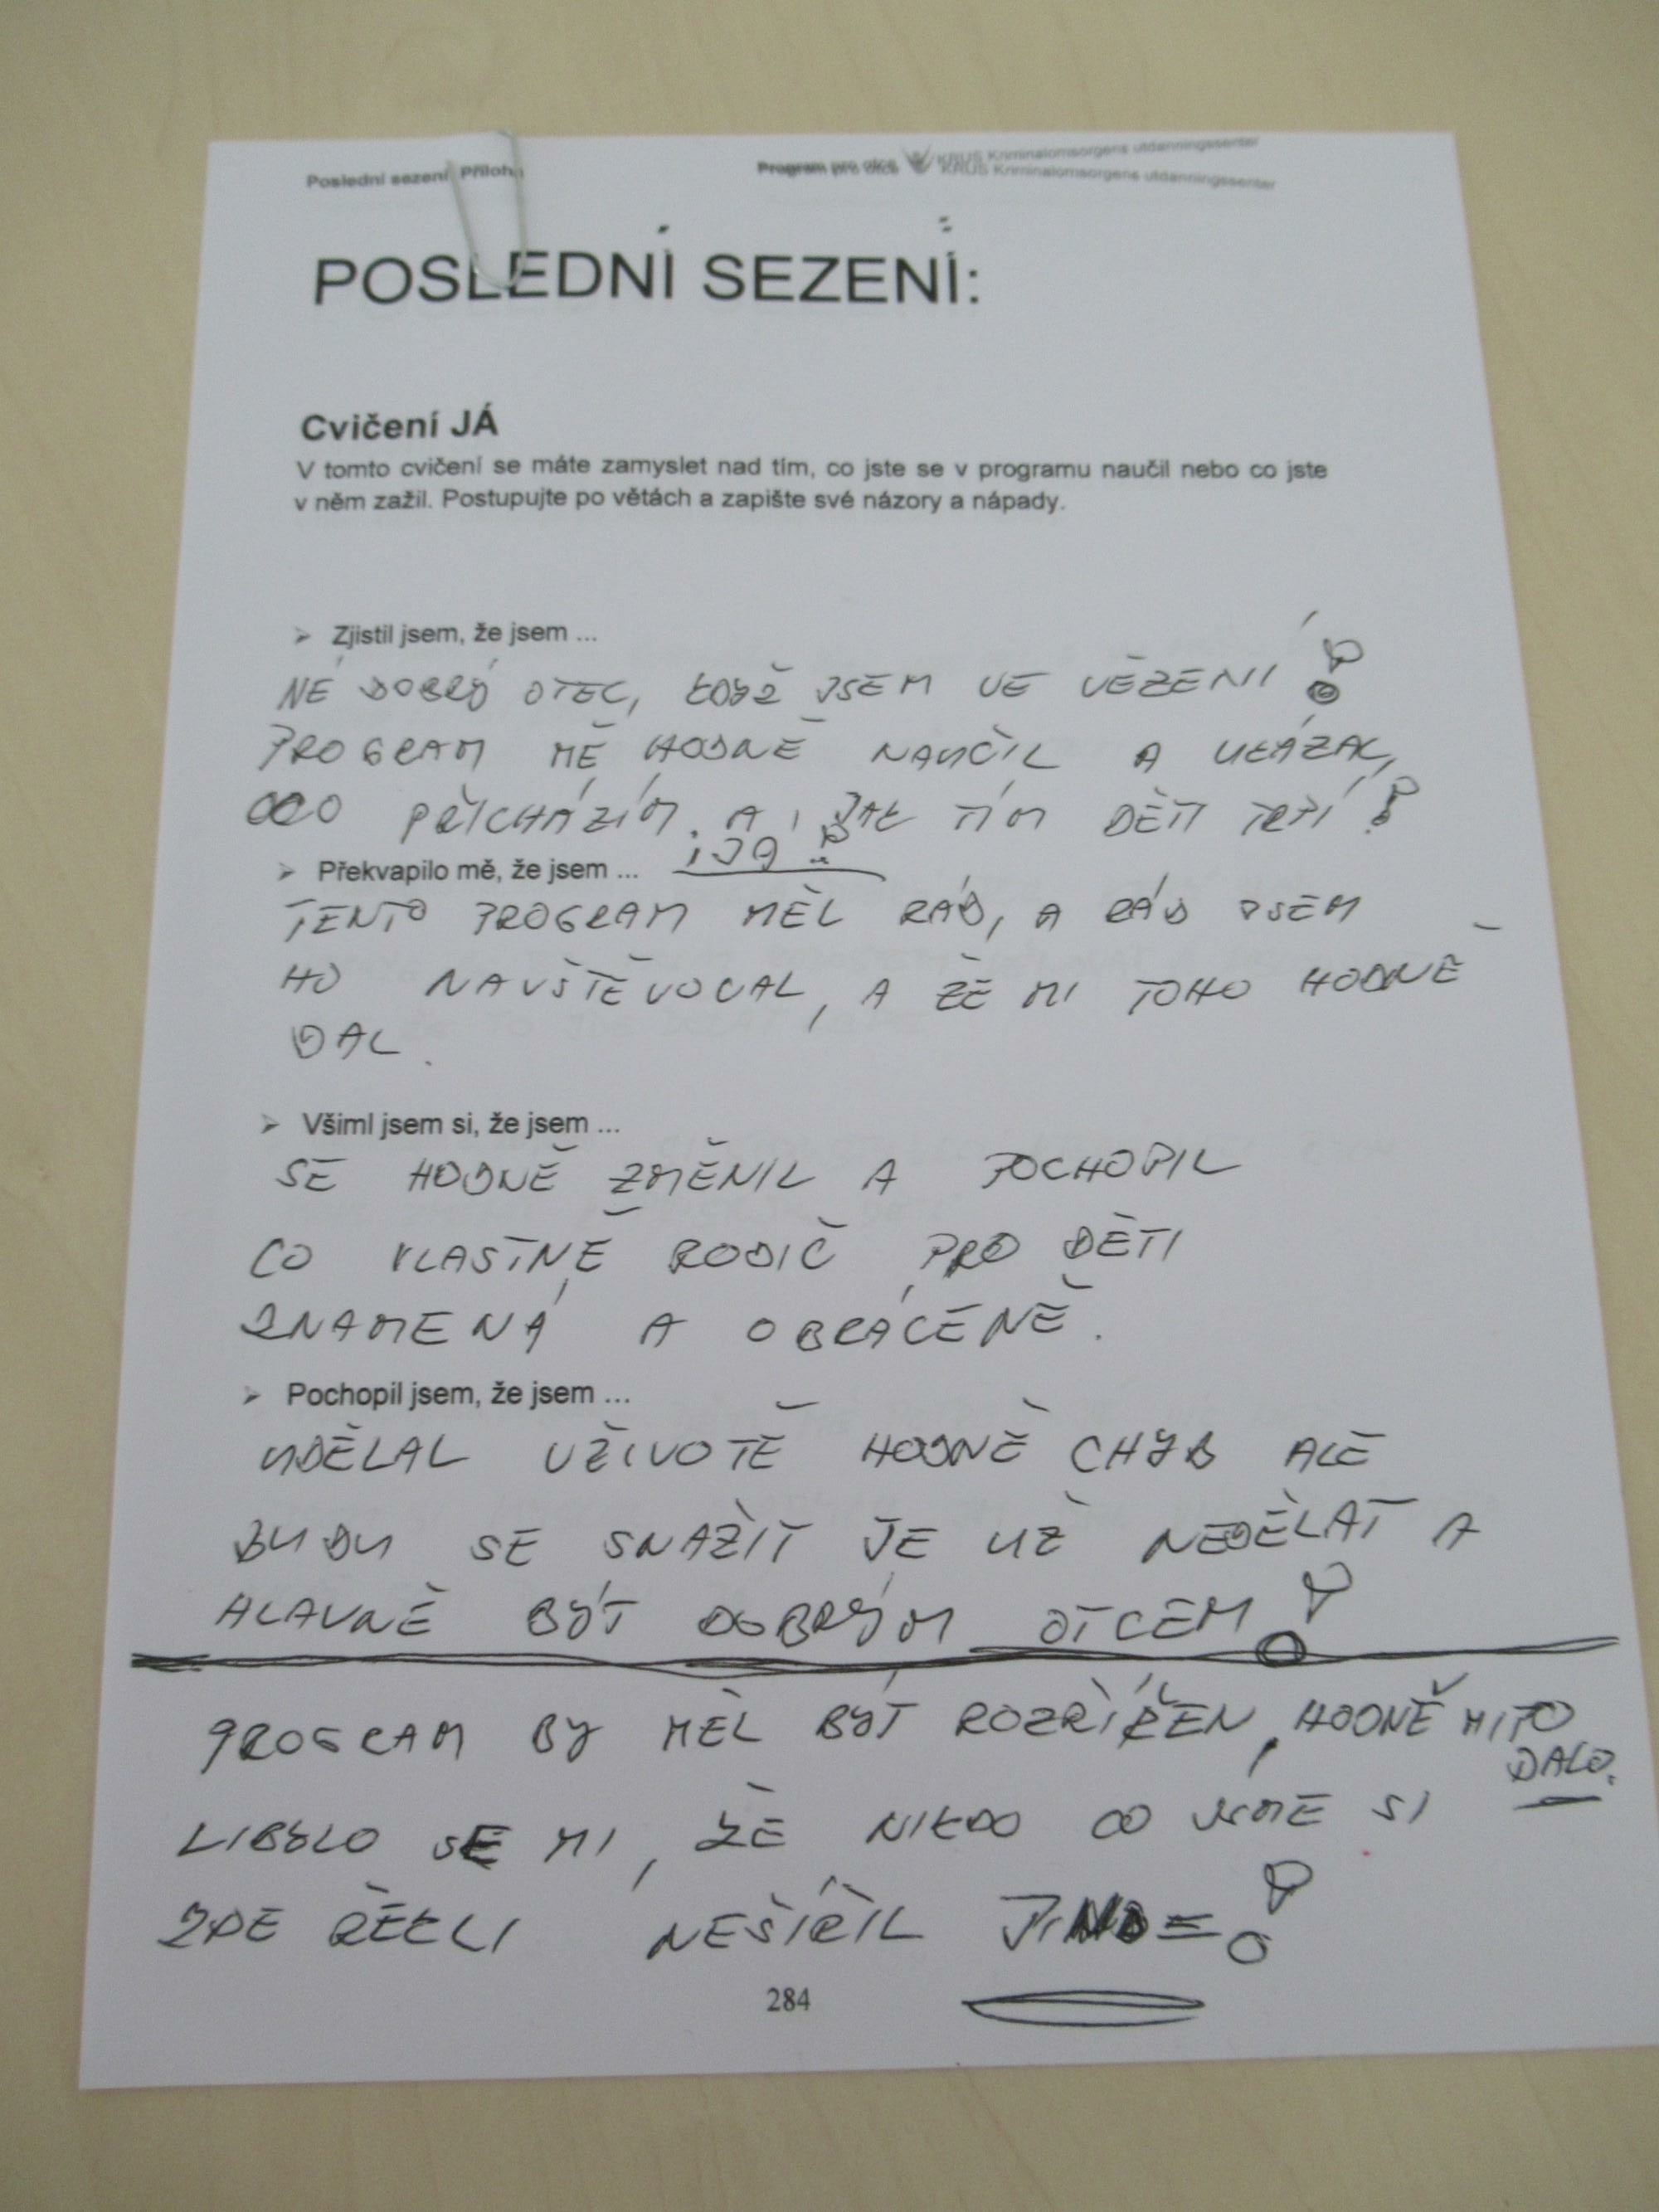 Poslední sezení Příloha
Program pro otce KRUS Kriminalomsorgens utdanningssenter
KRUS Kriminalomsorgens utdanningssenter
POSLEDNÍ SEZENÍ:
Cvičení JÁ
V tomto cvičení se máte zamyslet nad tím, co jste se v programu naučil nebo co jste
v něm zažil. Postupujte po větách a zapište své názory a nápady.
➢ Zjistil jsem, že jsem ...
NE DOBRÝ OTEC, KDYŽ JSEM VE VĚZENÍ!
PROGRAM MĚ HODNĚ NAUČIL A UKÁZAL,
OCO PŘICHÁZÍM. A, JAK TÍM DĚTI TRPÍ!
I JÁ!
➢ Překvapilo mě, že jsem ...
TENTO PROGRAM MĚL RÁD, A RÁD JSEM
HO NAVŠTĚVOVAL, A ŽE MI TOHO HODNĚ
DAL.
➢ Všiml jsem si, že jsem ...
SE HODNĚ ZMĚNIL A POCHOPIL
CO VLASTNĚ RODIČ PRO DĚTI
ZNAMENÁ A OBRÁCENĚ.
➢ Pochopil jsem, že jsem ...
UDĚLAL VŽIVOTĚ HODNĚ CHYB ALE
BUDU SE SNAŽIT JE UŽ NEDĚLAT A
HLAVNĚ BÝT DOBRÝM OTCEM!
PROGRAM BY MĚL BÝT ROZŘÍŘEN, HODNĚ MITO
DALO.
LIBYLO SE MI, ŽE NIKDO CO JSME SI
ZDE ŘEKLI NEŠÍŘIL
284